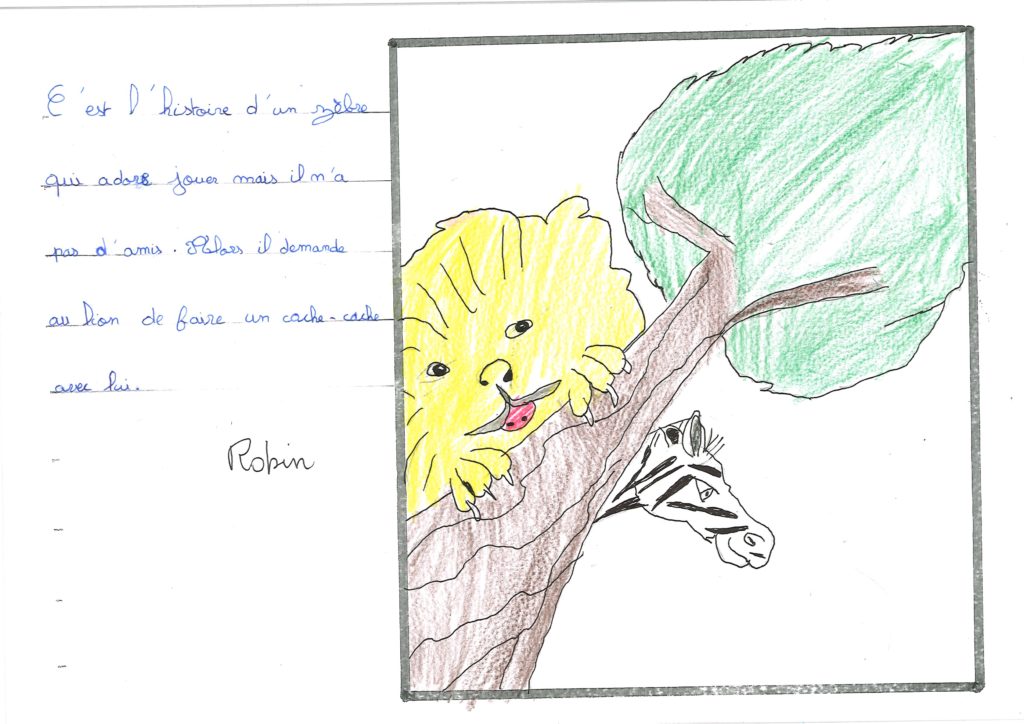 C'est l'histoire d'un zèbre
qui adore jouer mais il n'a
pas d'amis. Alors il demande
au lion de faire un cache-cache
avec lui.
Robin